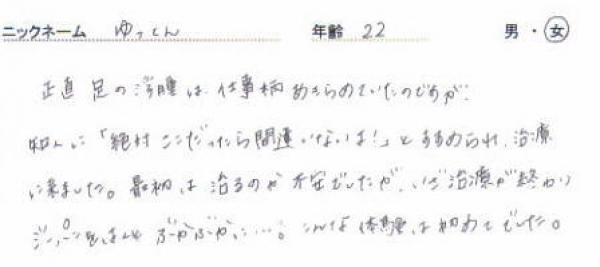 ニックネーム ゆうくん 年齢 22 男・女
正直 足の浮腫は、仕事柄あきらめていたのですが、
知人に「絶対ここだったら間違いないは!」とすすめられ、治療
に来ました。最初は治るのか不安でしたが、いざ治療が終わり
ジーパンをはくと ぶかぶかに…。こんな体験は初めてでした。